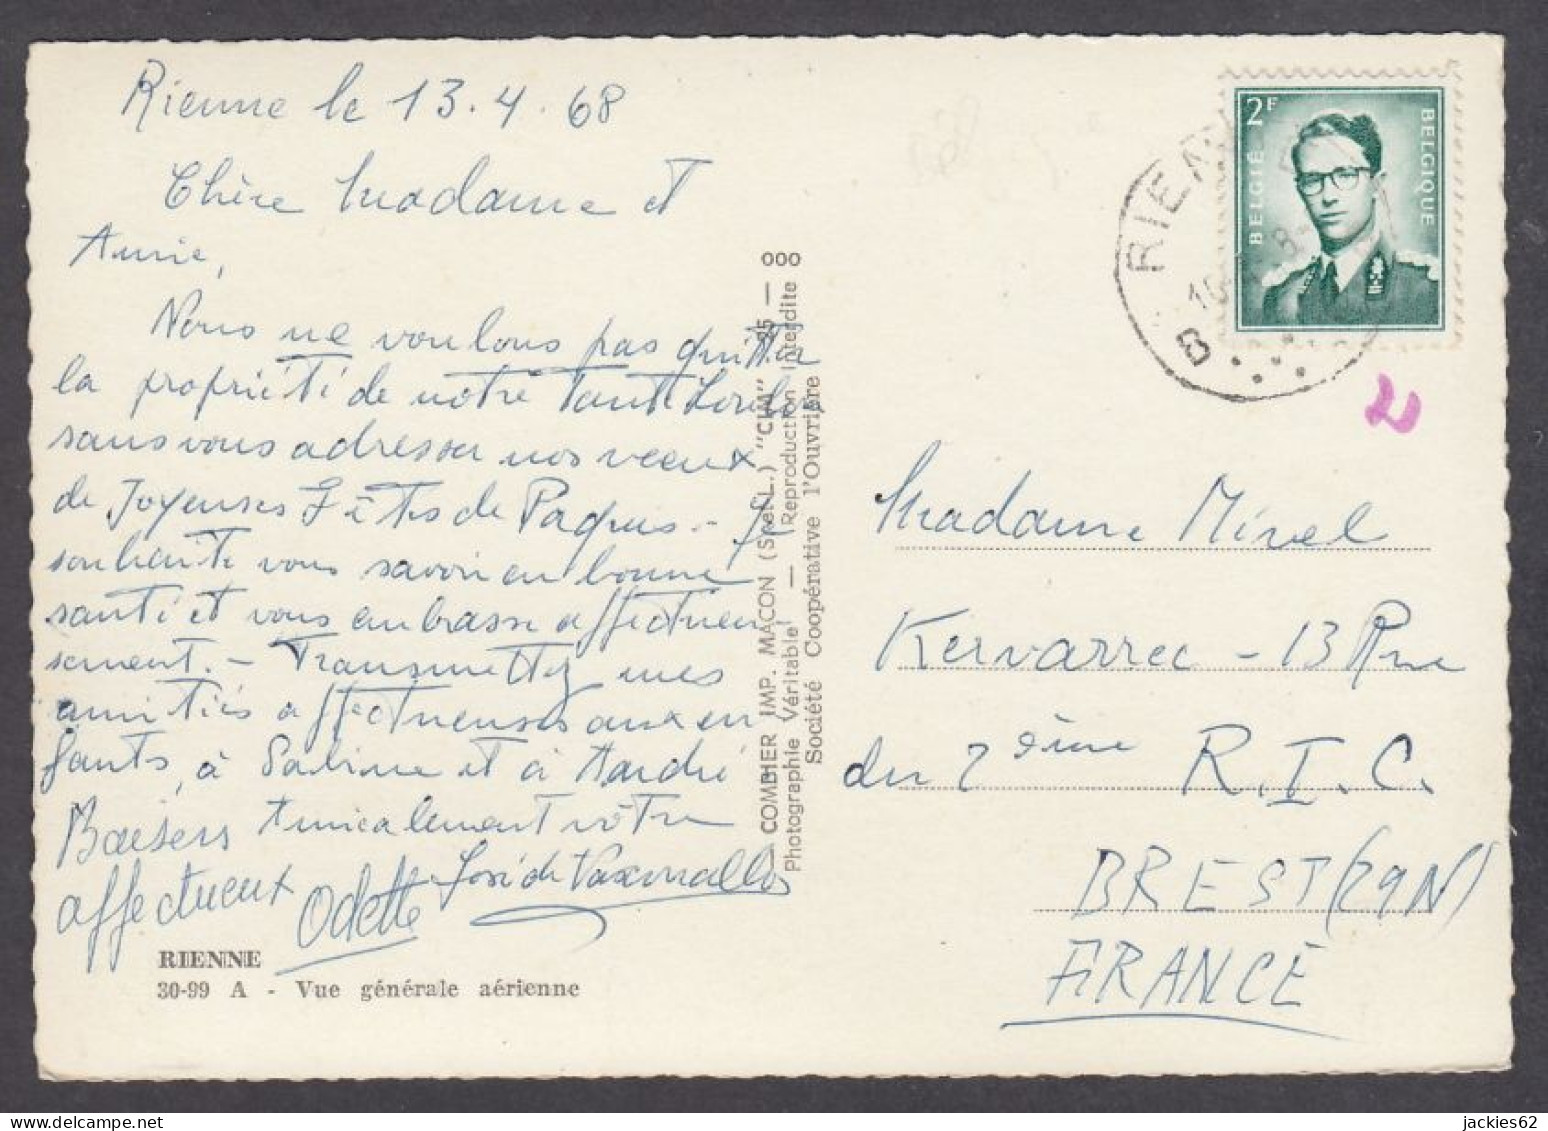 Rienne le 13.4.68
Chère Madame et
Annie,
Nous ne voulons pas quitter
la propriété de notre Tante Loulou
sans vous adresser nos vœux
de Joyeuses Fêtes de Paques - Je
souhaite vous savoir en bonne
santé et vous embrasse affectueu
sement. - Transmettez mes
amitiés affectueuses aux en
fants, à Sabine et à André
Amicalement vôtre
Baisers
affectueux
Odette
José de
RIENNE
30-99 A - Vue générale aérienne
COMBIER IMP. MACON (S.-et-L.) "CIM" 25 — 000
Photographie Véritable — Reproduction Interdite
Société Coopérative l'Ouvrière
RIENNE
B
2F
BELGIË
BELGIQUE
2
Madame Mivel
Kervarrec - 13 Rue
du 2ème R.I.C.
BREST (29N)
FRANCE
jackies62